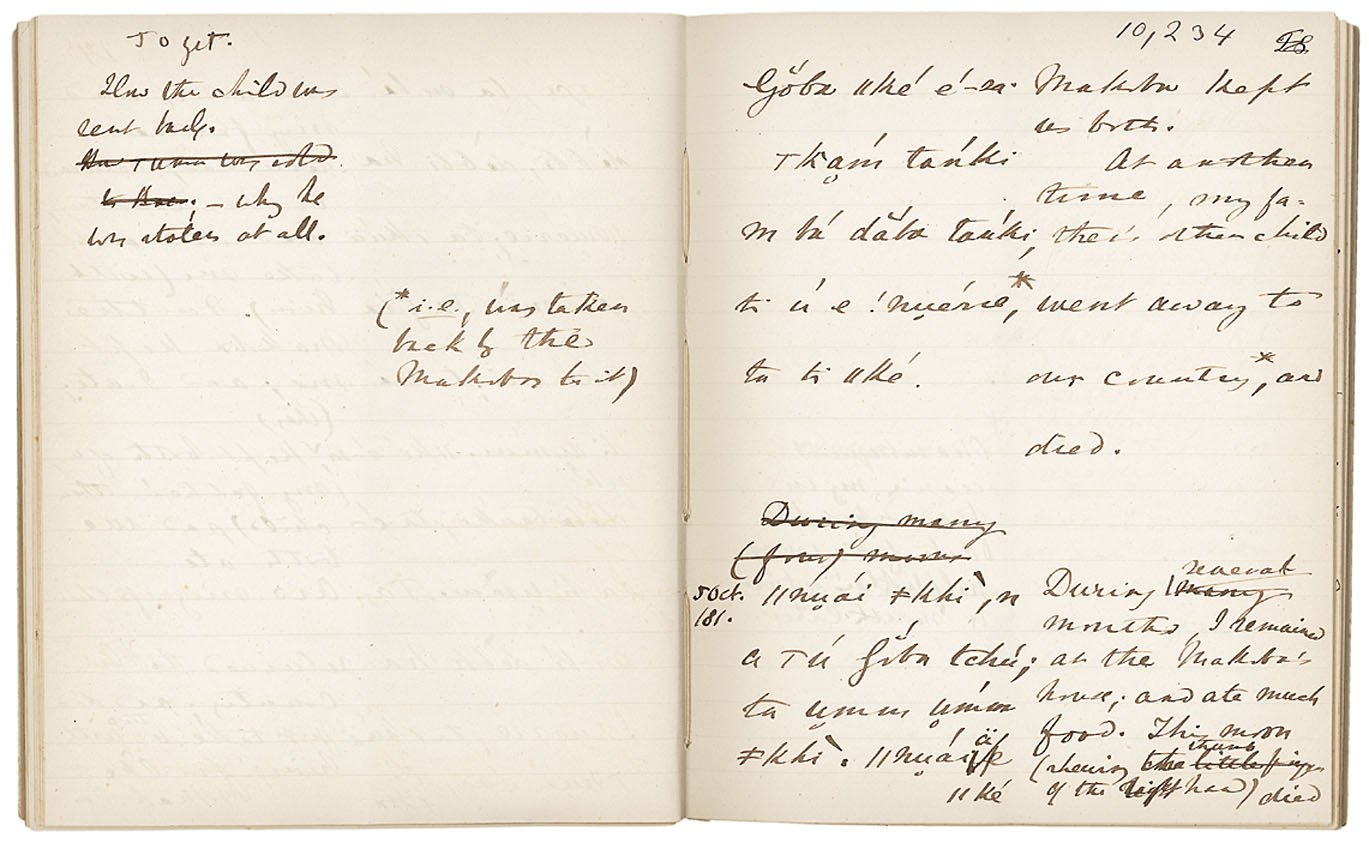 To get.
How the child was
sent back.
was sold
to - why he
was stolen at all.
(* i.e., was taken
back by the
Makobas to it)
10,234
Gŏba ǁké é-sa. Makoba kept
us both.
tańki At another
time, my fa-
m bá dăba tańki, ther's other child
ti ú e !nuérre,* went away to
ta ti ǁké. our country*, and
died.
During many
(four) moons
5 Oct. ǁnuái ǂkhì, n During several many
/81. months, I remained
a Tú Gŏba tchú; at the Makoba's
ta house; and ate much
food. This moon
ǂkhì. ǁnuái é (shewing the thumb little finger
of the left hand) died
ǁké